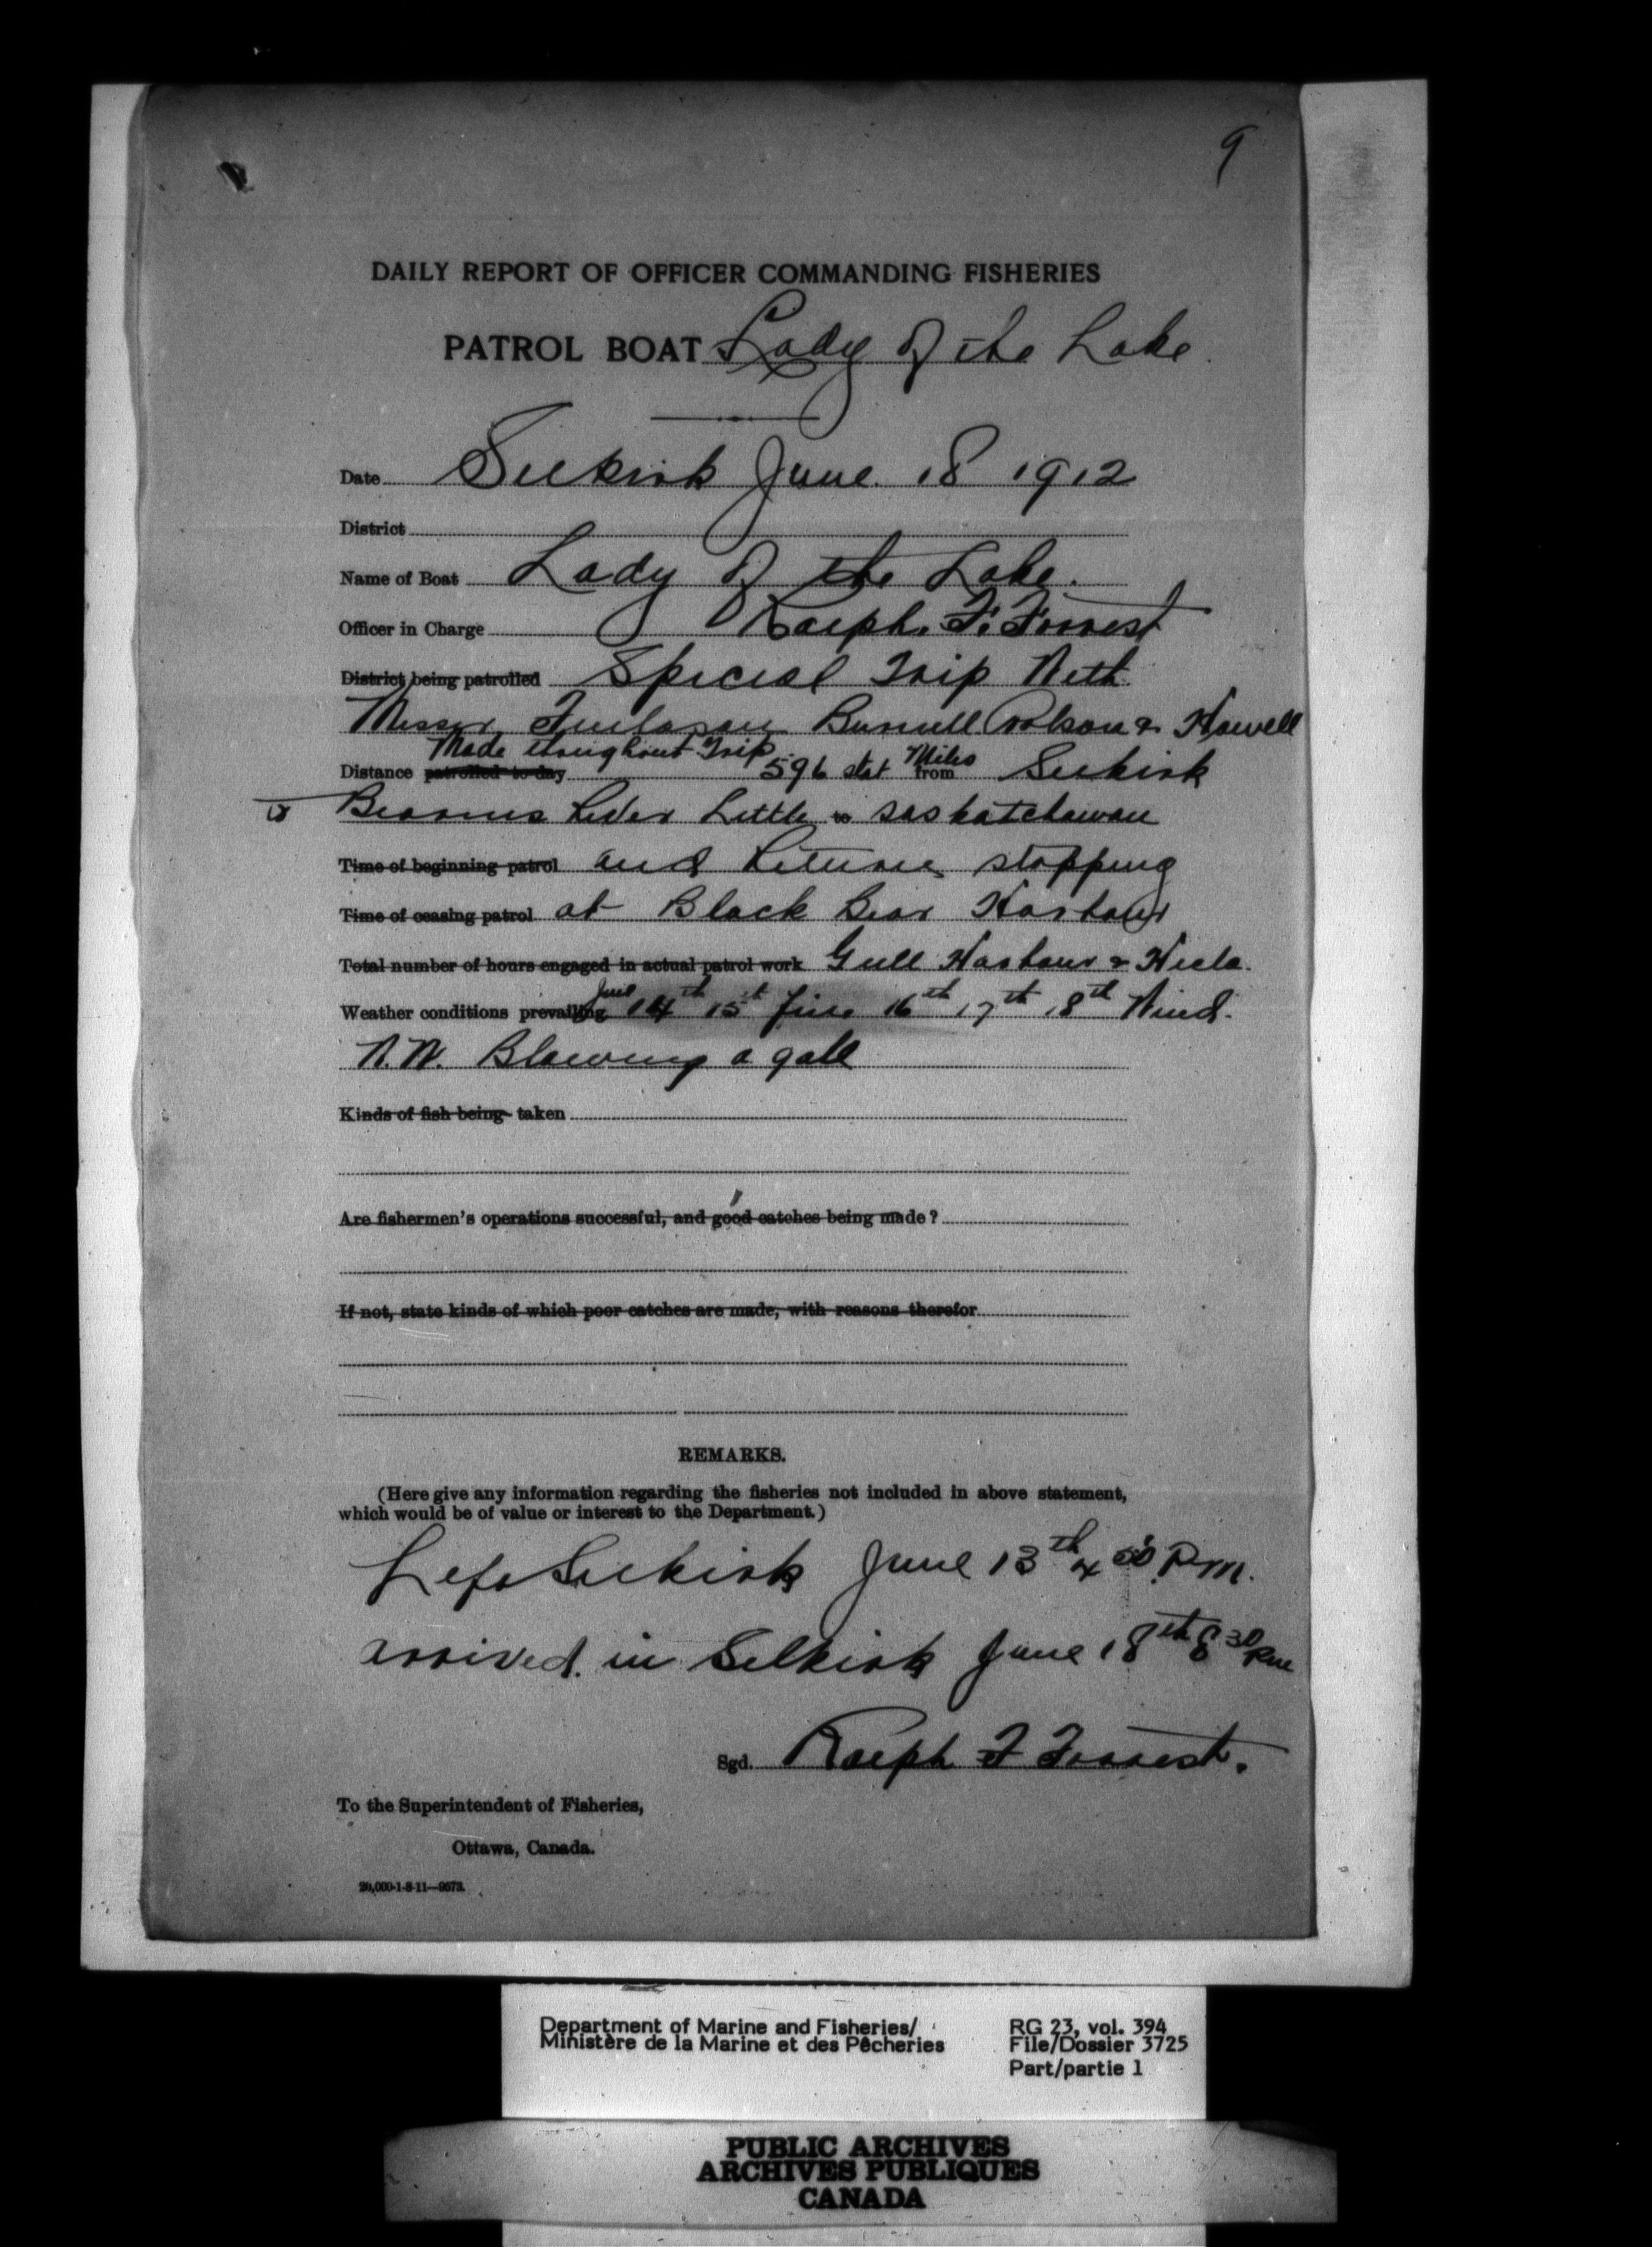 9
DAILY REPORT OF OFFICER COMMANDING FISHERIES
PATROL BOAT Lady of the Lake
Date Selkirk June 18 1912
District
Name of Boat Lady of the Lake.
Officer in Charge Ralph. F. Forrest
District being patrolled Special Trip With
Messrs Burnell & Howell
Made throughout Trip
Distance patrolled to-day 596 stat Miles from Selkirk
to Little to Saskatchewan
Time of beginning patrol and Return stopping
Time of ceasing patrol at Black Bear Harbour
Total number of hours engaged in actual patrol work Gull Harbour & Hecla.
Weather conditions prevailing June 14th 15th fine 16th 17th 18th Wind.
N.W. Blowing a gale
Kinds of fish being taken
Are fishermen's operations successful, and good catches being made?
If not, state kinds of which poor catches are made, with reasons therefor
REMARKS.
(Here give any information regarding the fisheries not included in above statement,
which would be of value or interest to the Department.)
Left Selkirk June 13th 4 50 P.M.
arrived. in Selkirk June 18th 8 30 P.M
Sgd. Ralph F Forrest.
To the Superintendent of Fisheries,
Ottawa, Canada.
20,000-1-8-11—9573.
Department of Marine and Fisheries/ RG 23, vol. 394
Ministère de la Marine et des Pêcheries File/Dossier 3725
Part/partie 1
PUBLIC ARCHIVES
ARCHIVES PUBLIQUES
CANADA